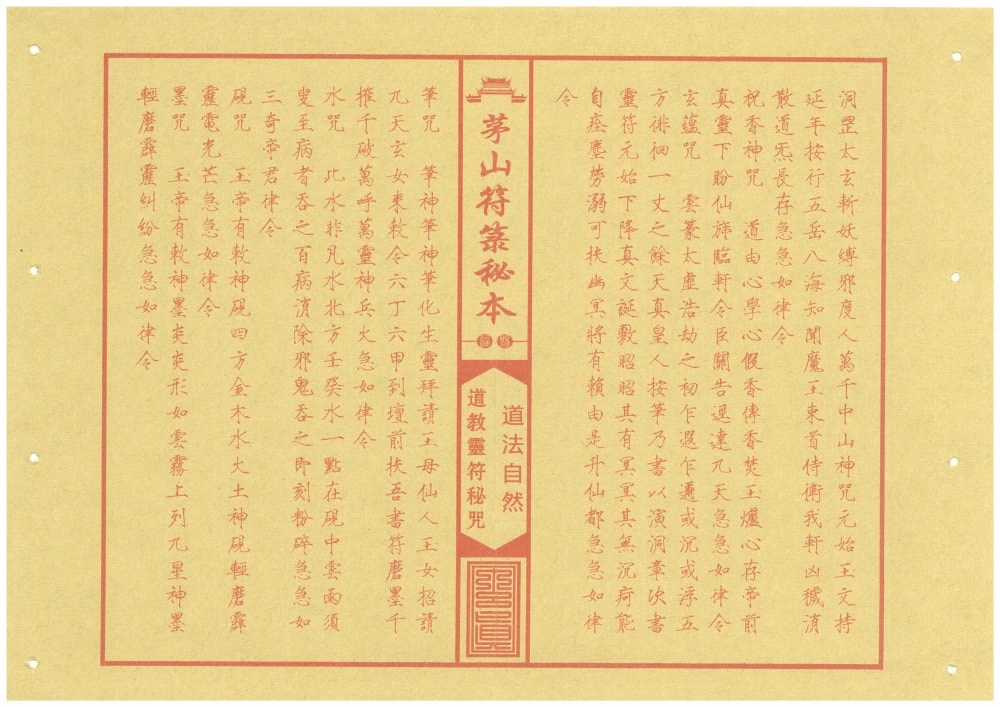 洞罡太玄斬妖縛邪度人萬千中山神咒元始玉文持
延年按行五岳八海知聞魔王束首侍衛我軒凶穢消
散道炁長存急急如律令
祝香神咒　道由心學心假香傳香焚玉爐心存帝前
真靈下盼仙旆臨軒令臣關告逕達九天急急如律令
玄蘊咒　雲篆太虛浩劫之初乍遐乍邇或沉或浮五
方徘徊一丈之餘天真皇人按筆乃書以演洞章次書
靈符元始下降真文誕敷昭昭其有冥冥其無沉疴能
自痊塵勞溺可扶幽冥將有賴由是升仙都急急如律
令
茅山符箓秘本
道法自然
道教靈符秘咒
筆咒　筆神筆神筆化生靈拜請王母仙人玉女招請
九天玄女來敕令六丁六甲到壇前扶吾書符磨墨千
摧千破萬呼萬靈神兵火急如律令
水咒　此水非凡水北方壬癸水一點在硯中雲雨須
叟至病者吞之百病消除邪鬼吞之即刻粉碎急急如
三奇帝君律令
硯咒　玉帝有敕神硯四方金木水火土神硯輕磨霹
靂電光芒急急如律令
墨咒　玉帝有敕神墨炎炎形如雲霧上列九星神墨
輕磨霹靂糾紛急急如律令